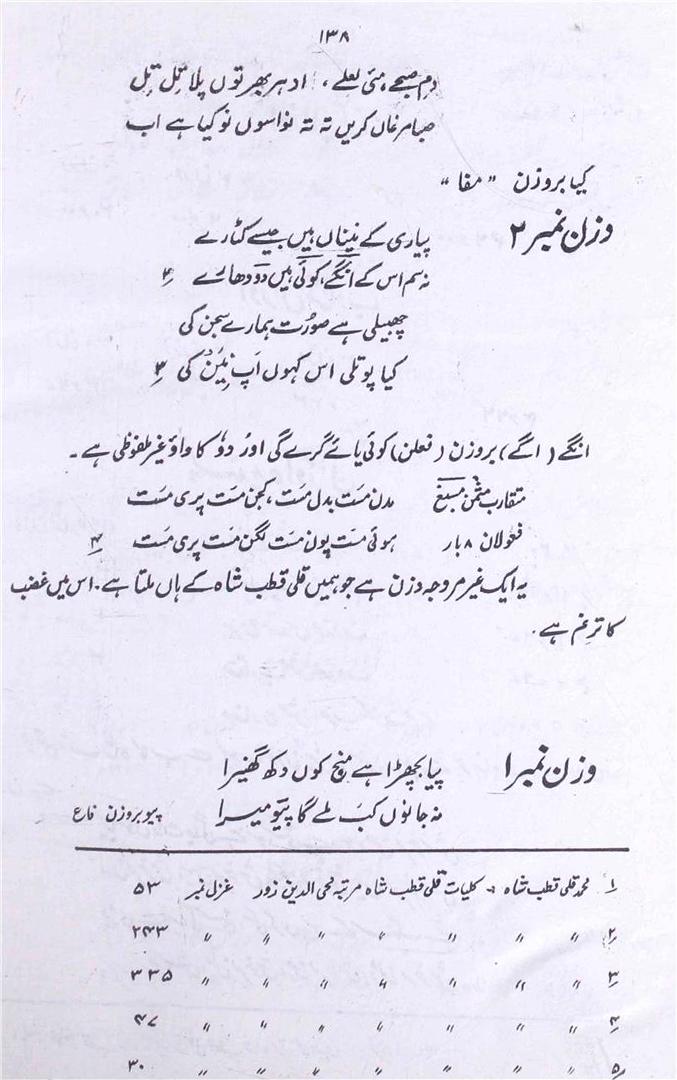 ۱۳۸
دم صبحے، مئی لعلے، ادھر بھر توں پلا تل تل
صبا مرغاں کریں تہ تہ نواسوں نو کیا ہے اب
کیا بروزن "مفا"
وزن نمبر ۲ پیاری کے نیناں ہیں جیسے کٹارے
نہ سم اس کے انگے، کوئی ہیں دو دھارے ۲؎
چھبیلی ہے صورت ہمارے سجن کی
کیا پوتلی اس کہوں اَپ نین کی ۳؎
انگے (اگے) بروزن (فعلن) کوئی یائے گرے گی اور دو کا واؤ غیر ملفوظی ہے۔
متقارب مثمن مسبغ مدن مست بدل مست، کجن مست پری مست
فعولان ۸ بار ہوئی مست پون مست لگن مست پری مست ۴؎
یہ ایک غیر مروجہ وزن ہے جو ہمیں قلی قطب شاہ کے ہاں ملتا ہے۔ اس میں غضب
کا ترنم ہے۔
وزن نمبر ۱ پیا بچھڑا ہے منج کوں دکھ گھنیرا
نہ جانوں کب ملے گا پیو میرا پیو بروزن فاع
۱؎ محمد قلی قطب شاہ - کلیات قلی قطب شاہ مرتبہ محی الدین زور غزل نمبر ۵۳
۲؎ " " " " " " " ۲۴۳
۳؎ " " " " " " " ۳۳۵
۴؎ " " " " " " " ۴۷
۵؎ " " " " " " " ۳۰